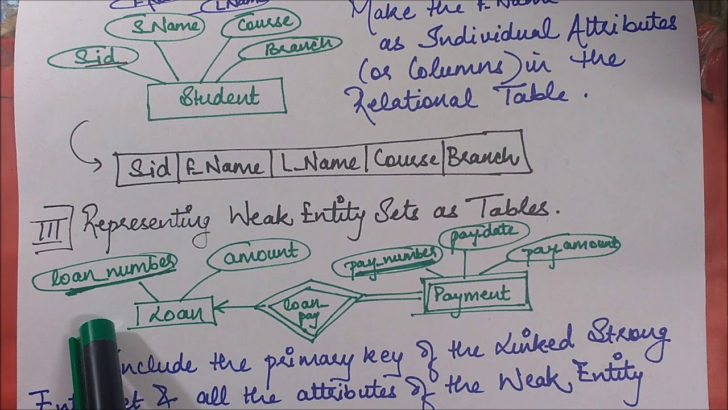 F_Name L_Name
S_Name Course
Sid Branch
Student
Make the F_Name
as Individual Attributes
(or Columns) in the
Relational Table.
Sid F_Name L_Name Course Branch
III Representing Weak Entity Sets as Tables.
loan_number amount pay_number pay_date pay_amount
Loan loan_pay Payment
include the primary key of the linked Strong
& all the attributes of the Weak Entity